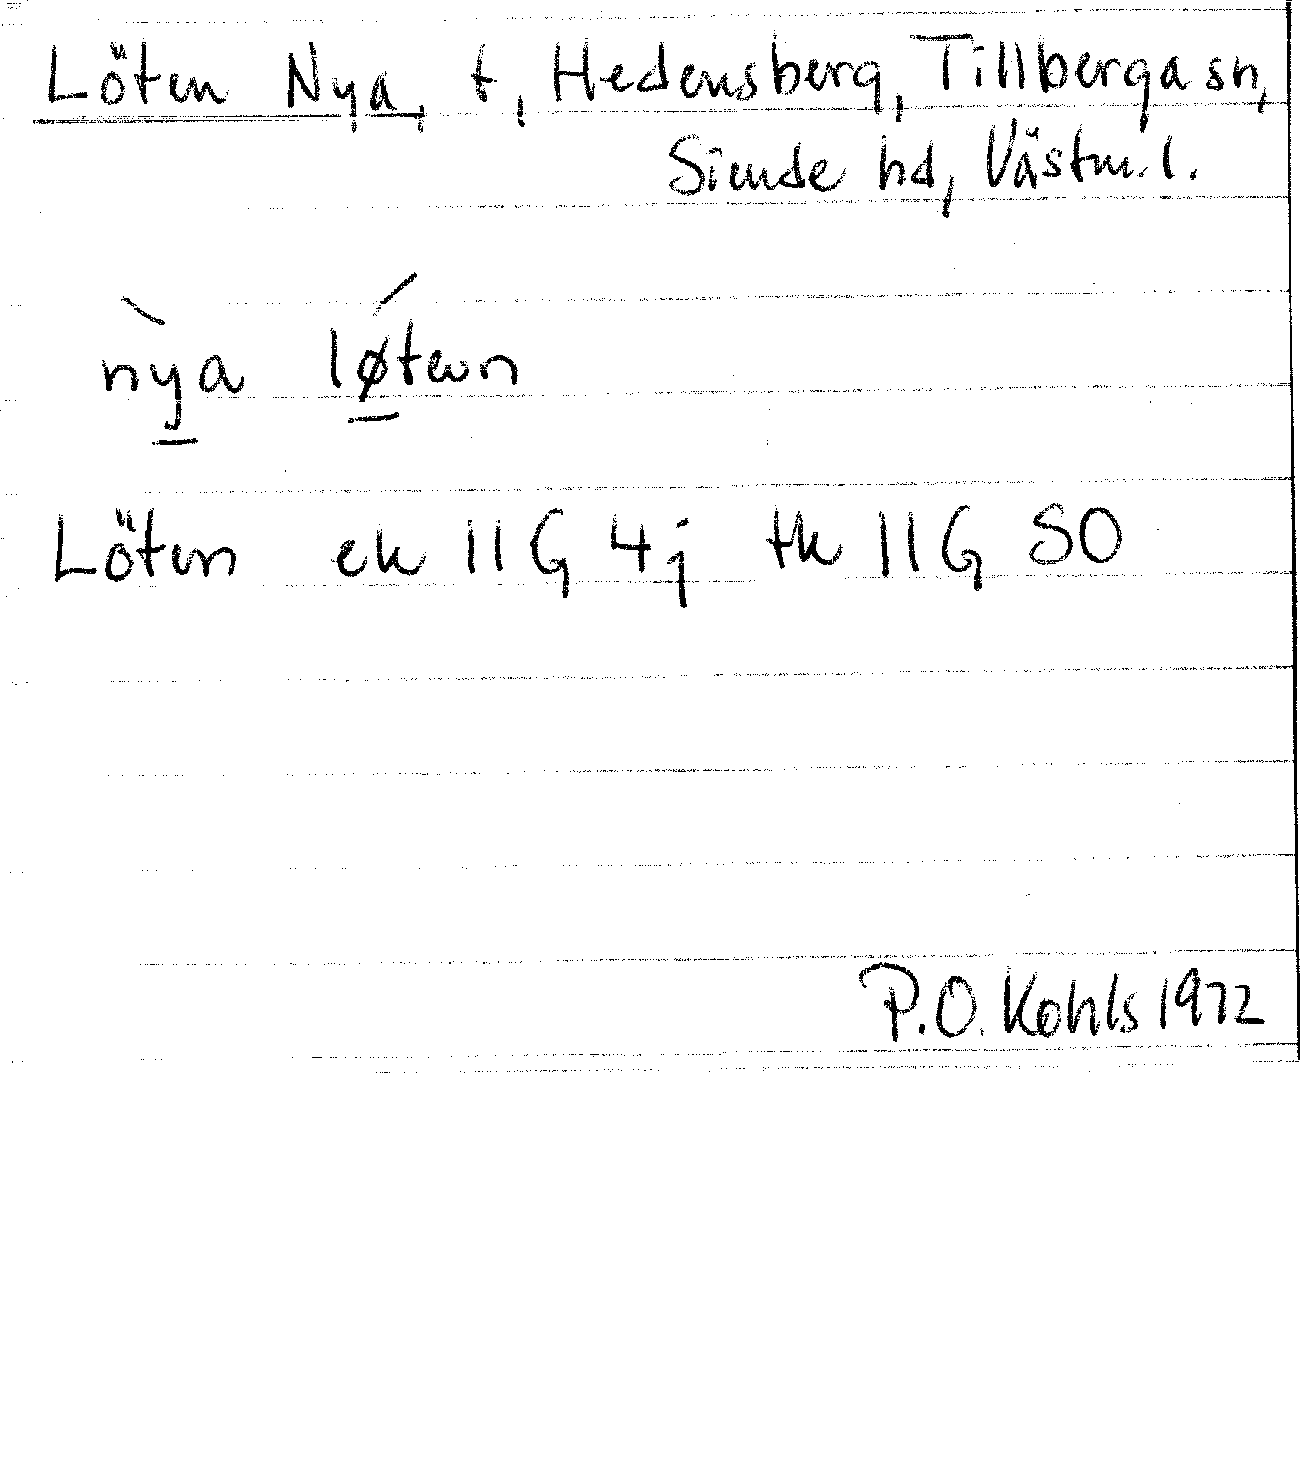 Löten Nya, t, Hedensberg, Tillberga sn,
Siende hd, Västm. l.
nya løten
Löten ek 11G 4j tk 11G SO
P.O. Kohls 1972